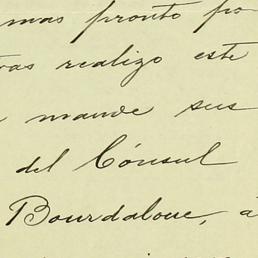 mas pronto po
ras realizo este
mande sus
del Cónsul
Bourdaloue, á